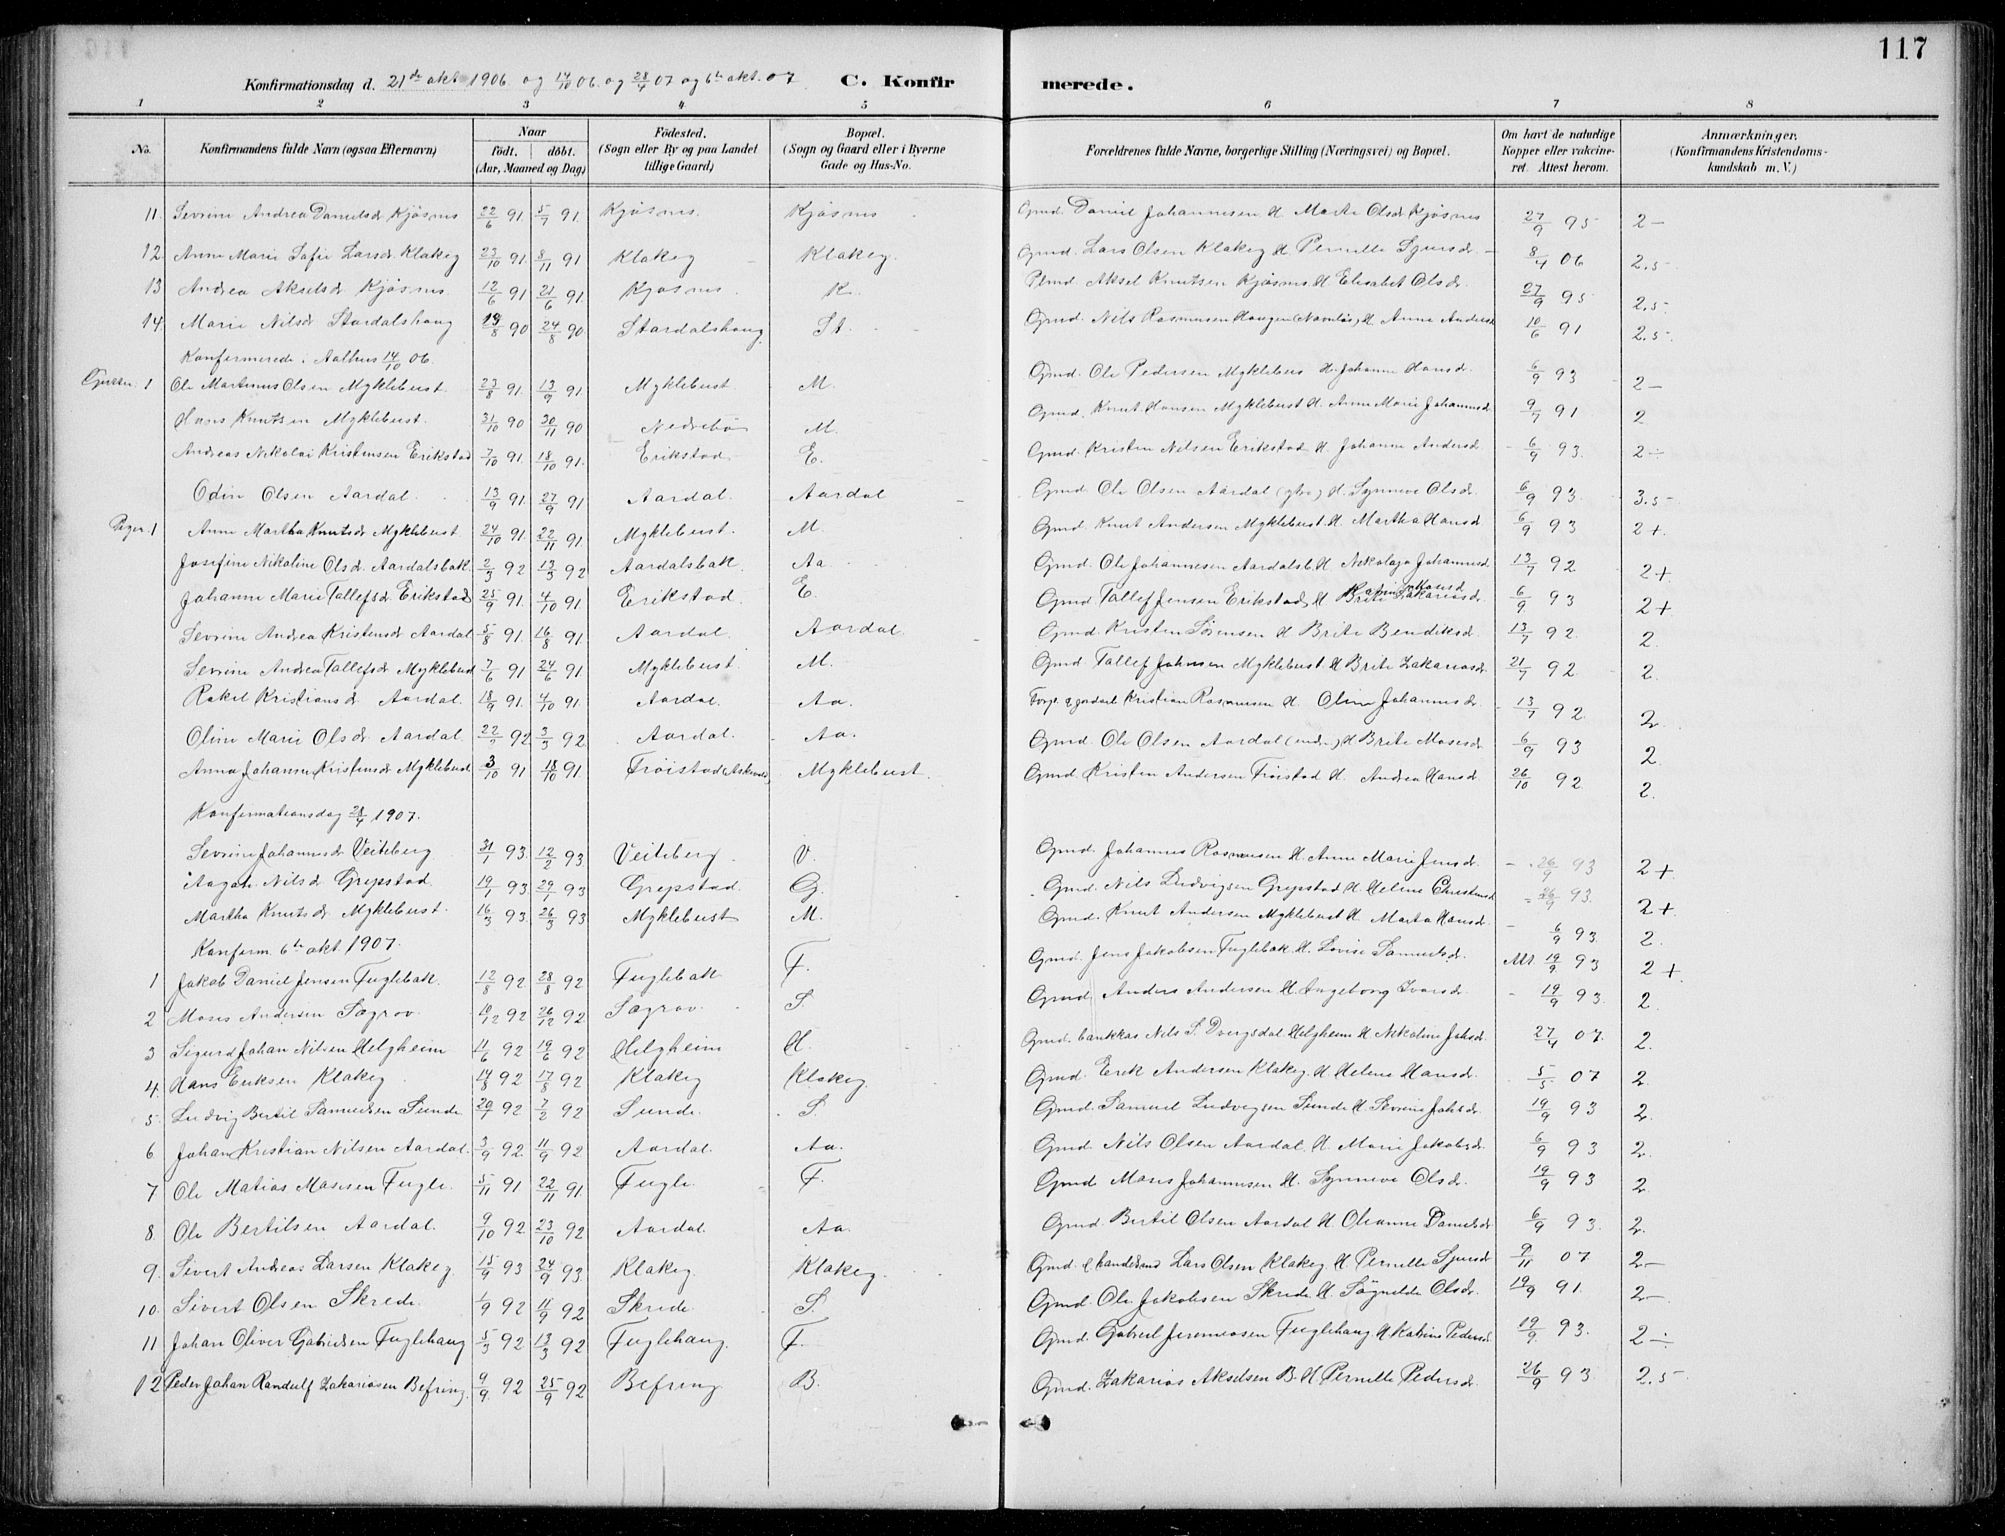 117
Konfirmationsdag d. 21de okt 1906 og 14/10 06. og 28/4 07 og 6te okt. 07 C. Konfirmerede.
1 2 3 4 5 6 7 8
No. Konfirmandens fulde Navn (ogsaa Efternavn) Naar født, døbt. (Aar, Maaned og Dag) Fødested. (Sogn eller By og paa Landet tillige Gaard) Bopæl. (Sogn og Gaard eller i Byerne Gade og Hus-No. Forældrenes fulde Navne, borgerlige Stilling (Næringsvei) og Bopæl. Om havt de naturlige Kopper eller vakcineret. Attest herom. Anmærkninger. (Konfirmandens Kristendomskundskab m. V.)
11. Sevrine Andrea Danielsdr Kjøsnes 22/6 91 5/7 91. Kjøsnes. Kjøsnes Gmd. Daniel Johannesen H Marte Olsdr Kjøsnes 27/9 95 2-
12. Anne Marie Sofie Larsdr Klakeg 23/10 91. 8/11 91 Klakeg Klakeg. Gmd. Lars Olsen Klakeg H Pernille Sjursdr. 8/4 06 2,5-
13 Andrea Akselsdr Kjøsnes 12/6 91 21/6 91 Kjøsnes. K. Plmd. Aksel Knutsen Kjøsnes H Elisabet Olsdr. 27/9 95 2,5-
14. Marie Nilsdr Stardalshaug 19/8 90 24/8 90. Stardalshaug. St. Gmd. Nils Rasmussen Haugen H Anne Andersd 10/6 91 2,5-
Konfirmerede i Aalhus 14/10 06.
1 Ole Martinus Olsen Myklebust. 23/8 91. 13/9 91. Myklebust. M. Gmd. Ole Pedersen Myklebus H. Johanne Hansdr. 6/9 93 2-
Hans Knutsen Myklebust. 31/10 90 30/11 90 Nedrebø M. Gmd. Knut Hansen Myklebust H. Anne Marie Johannesdr 9/7 91 2
Andreas Nikolai Kristensen Erikstad 7/10 91. 18/10 91. Erikstad E. Gmd. Kristen Nilsen Erikstad H Johanne Andersdr 6/9 93. 2÷
Odin Olsen Aardal. 13/9 91. 27/9 91 Aardal. Aardal Gmd. Ole Olsen Aardal H. Synneve Olsdr. 6/9 93. 3.5-
Piger. 1 Anne Martha Knutsdr Myklebust 24/10 91. 22/11 91. Myklebust. M. Gmd. Knut Andersen Myklebust H. Martha Hansdr 6/9 93 2+
Josefine Nikoline Olsdr. Aardalsbak 2/3 92 13/3 92 Aardalsbak Aa Gmd. Ole Johannesen Aardalsb. H Nekolaja Johannesd 13/7 92 2+
Johanne Marie Tollefsdr Erikstad 25/9 91. 4/10 91. Erikstad. E. Gmd. Tallef Jensen Erikstad H Brite Zakariasdr. 6/9 93 2+
Sevrine Andrea Kristensdr Aardal 5/8 91. 16/8 91. Aardal. Aardal. Gmd. Kristen Sørensen H Brite Bendiksdr. 13/7 92. 2.
Sevrine Andrea Tallefsdr Myklebust 7/6 91 24/6 91 Myklebust. M. Gmd. Tallef Johnsen Myklebust H Brite Zakariasdr. 21/7 92 2.
Rakel Kristiansdr Aardal. 18/9 91. 4/10 91. Aardal. Aa. Kristian Rasmussen H Oline Johannesdr. 13/7 92 2.
Oline Marie Olsdr Aardal 22/2 92 3/3 92. Aardal. Aa. Gmd. Ole Olsen Aardal H Brite Mosesdr. 6/9 93 2.
Anna Johanne Kristensdr Myklebust 3/10 91 18/10 91 Frøistad Askevold Myklebust. Gmd. Kristen Andersen Frøistad H. Andrea Hansd. 26/10 92. 2.
Konfirmationsdag 28/4 1907.
Sevrine Johannesdr Veiteberg 31/1 93. 12/2 93. Veiteberg. V. Gmd. Johannes Rasmussen H. Anne Marie Jensdr. 26/9 93 2+
Aagot Nilsdr Grepstad. 19/1 93. 29/1 93 Grepstad. G. Gmd. Nils Ludvigsen Grepstad H Heline Christensd 26/9 93. 2+
Martha Knutsdr Myklebust. 16/3 93. 26/3 93 Myklebust M. Gmd. Knut Andersen Myklebust H. Marta Hansdr. 6/9 93 2.
Konfirm. 6te okt. 1907.
1 Jakob Daniel Jensen Fuglebak. 12/8 92 28/8 92 Fuglebak F. Gmd. Jens Jakobsen Fuglebak H. Lovise Samuelsdr. Att. 19/9 93 2+
2 Moses Andersen Søgrov. 10/12 92 26/12 92. Søgrov. S Gmd. Anders Andersen H Ingeborg Ivarsdr. 19/9 93. 2.
3 Sigurd Johan Nilsen Helgheim 11/6 92 19/6 92 Helgheim H. Gmd. bankkas Nils S. Dvergsdal Helgheim H Nekoline Johsdr. 27/4 07. 2.
4. Hans Eriksen Klakeg 14/8 92 17/8 92 Klakeg Klakeg Gmd. Erik Andersen Klakeg H Helene Hansdr. 5/5 07 2.
5. Ludvig Bertil Samuelsen Sunde 20/1 92 7/2 92 Sunde. S. Gmd. Samuel Ludvigsen Sunde H Sevrine Johsdr. 19/9 93 2.
6 Johan Kristian Nilsen Aardal. 3/9 92. 11/9 92 Aardal. Aa. Gmd. Nils Olsen Aardal. H Marie Jakobsdr. 6/9 93 2.
7 Ole Matias Mosesen Fugle. 5/11 91 22/11 91. Fugle. F. Gmd. Moses Johannesen H. Synneve Olsdr. 19/9 93 2
8. Ole Bertilsen Aardal. 9/10 92 23/10 92. Aardal Aa. Gmd. Bertil Olsen Aardal H Oleanne Danielsdr 6/9 93. 2.
9. Sivert Andreas Larsen Klakeg. 15/9 93 24/9 93 Klakeg. Klakeg. Gmd. & handelsmd Lars Olsen Klakeg H. Pernille Sjursdr 9/11 07 2-
10. Sivert Olsen Skrede. 1/9 92 11/9 92 Skrede. S. Gmd. Ole Jakobsen Skrede H. Søgnelde Olsdr. 19/9 91. 2-
11 Johan Oliver Gabrielsen Fuglehaug 5/3 92 13/3 92 Fuglehaug. F. Gmd. Gabriel Jeremiasen Fuglehaug H Katrine Pedersdr. 19/9. 93. 2÷
12 Peder Johan Randulf Zakariasen Befring. 9/9 92 25/9 92 Befring B. Gmd. Zakarias Akselsen B. H Pernille Pedersdr. 26/9 93. 2.5-